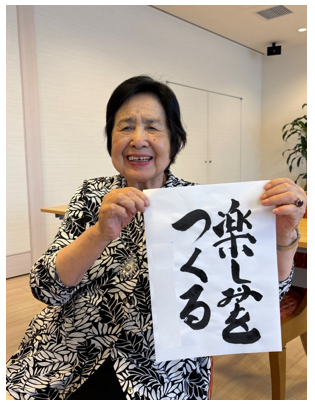 楽しみを
つくる